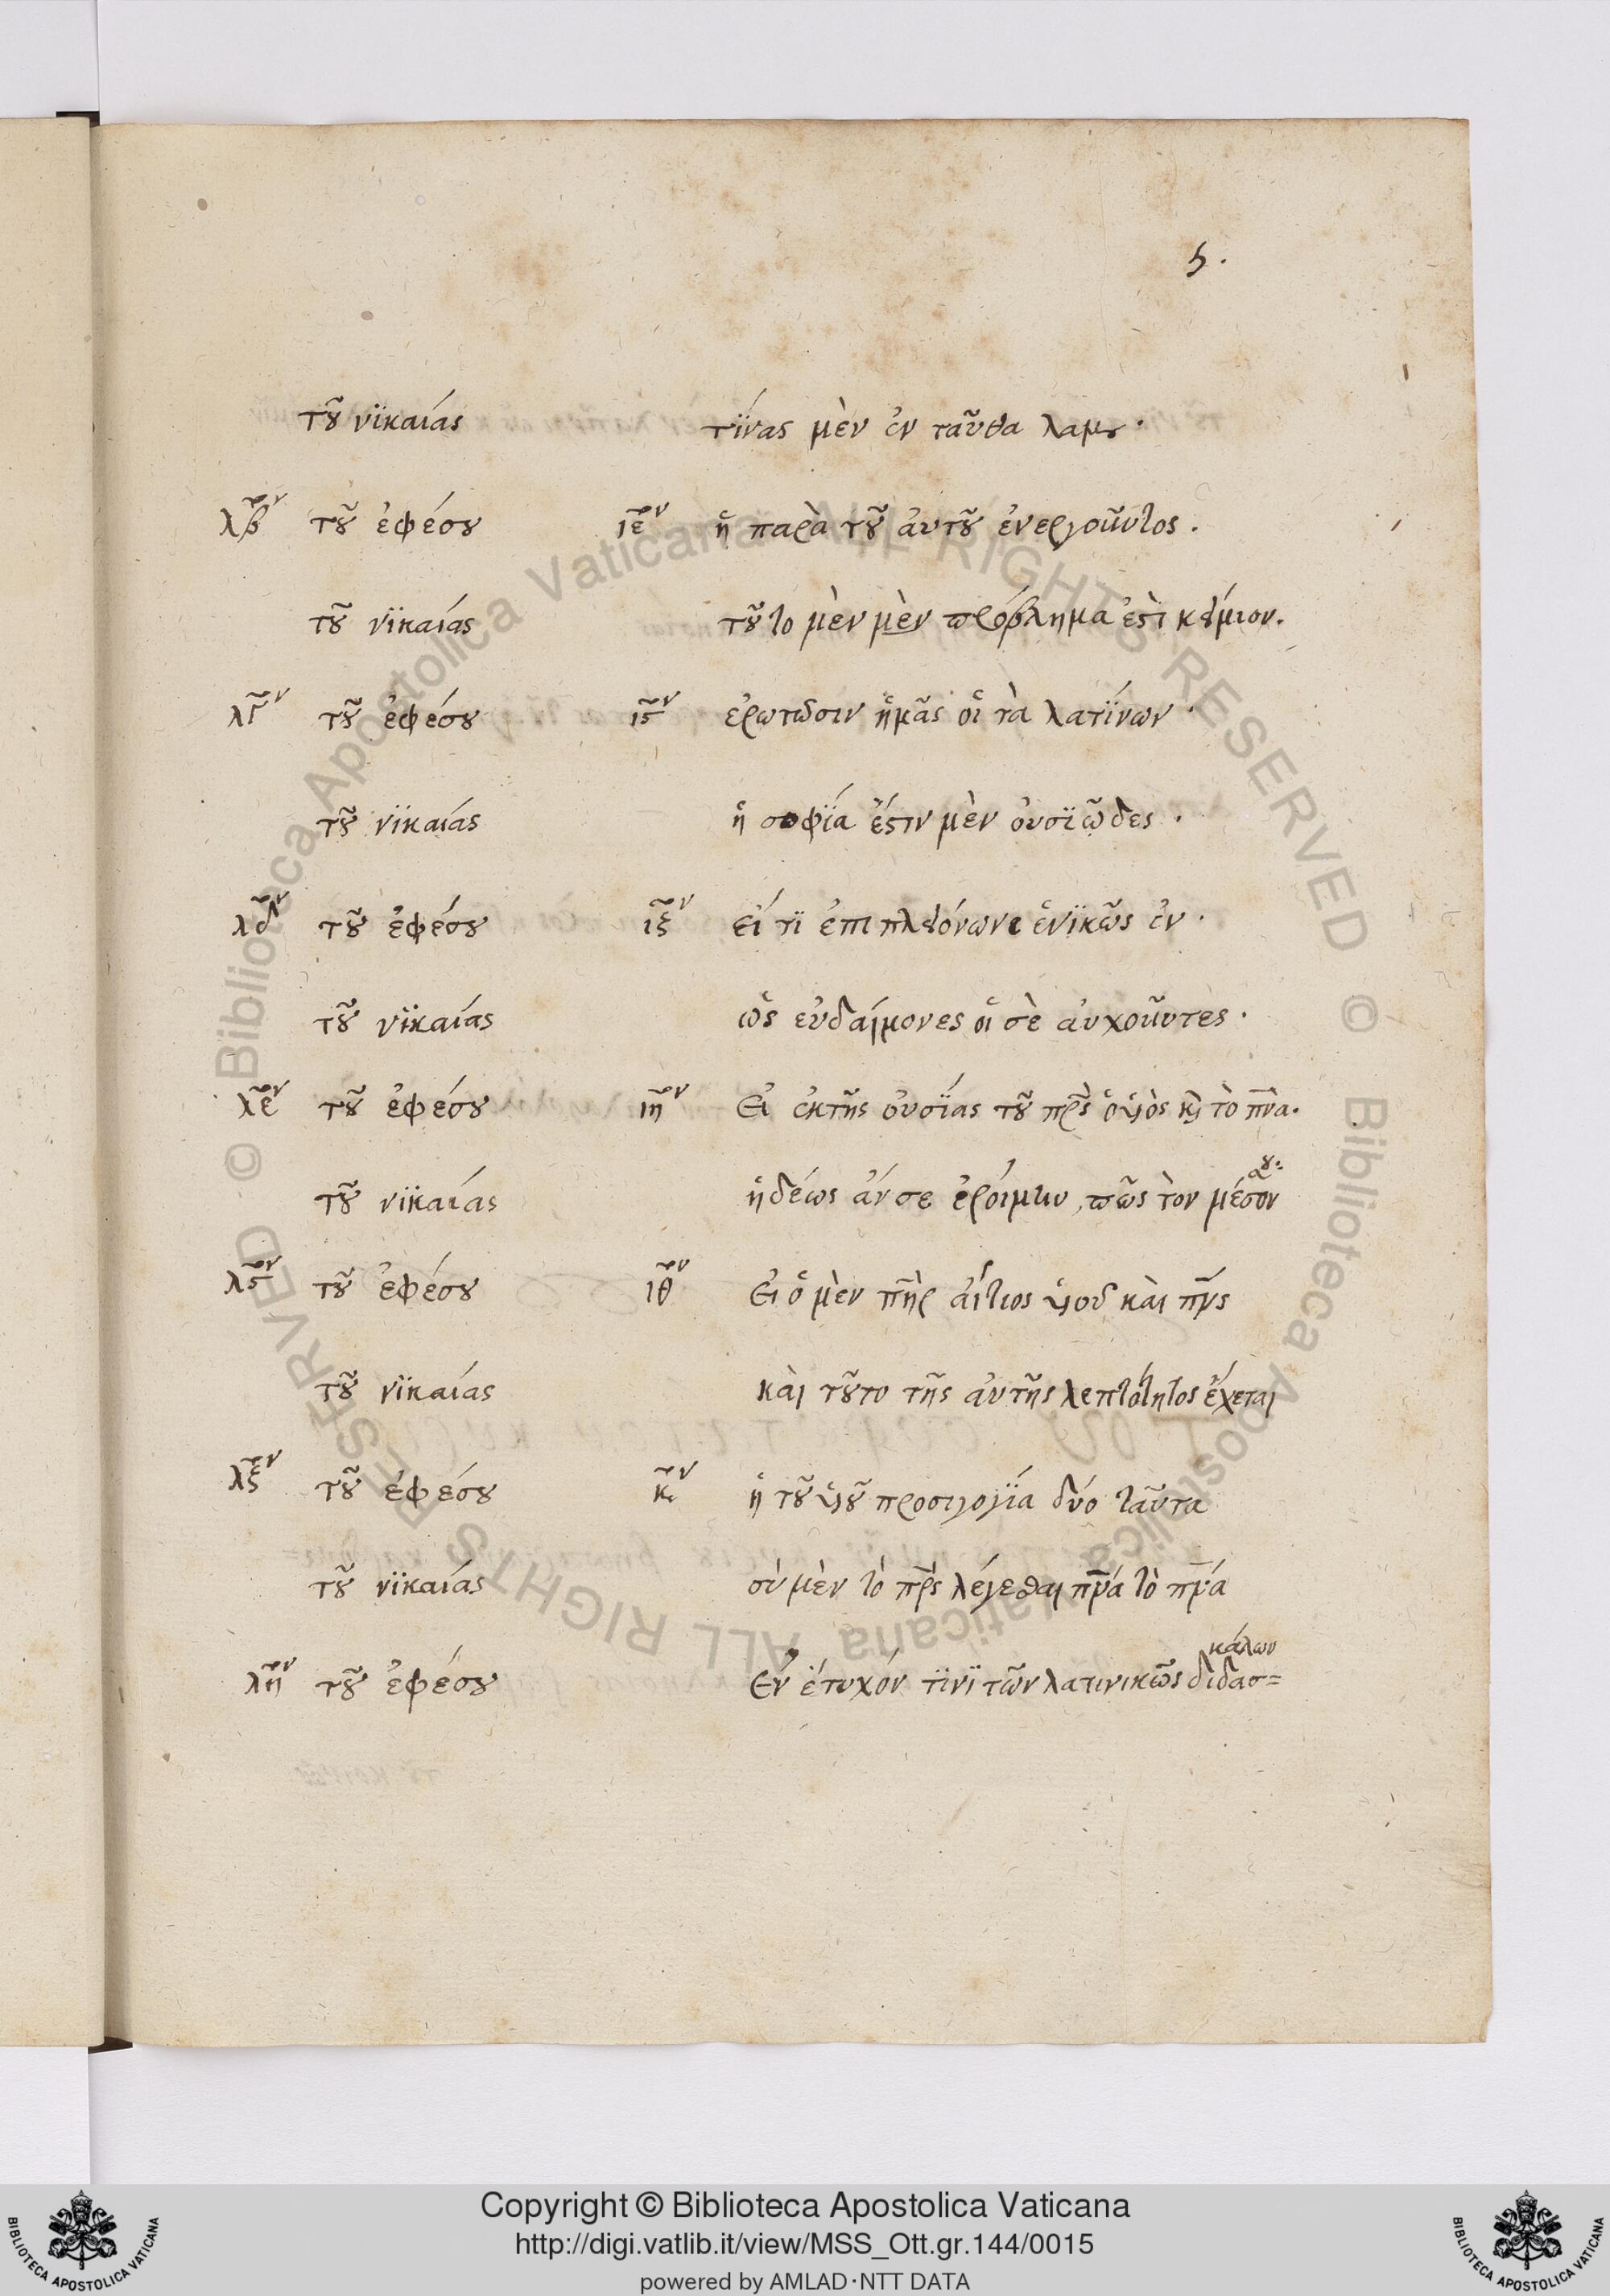 5.
τοῦ νϊκαίας τϊνας μὲν ἐν ταῦθα λαμ
λβον τοῦ ἐφέσου ιεον ἣ παρὰ τοῦ ἀυτοῦ ἐνεργοῦντος.
τοῦ νϊκαίας τοῦτο μὲν μὲν πρόβλημα ἐστὶ
λγον τοῦ ἐφέσου ιϛον ἐρωτῶσιν ἡμᾶς οἱ τὰ λατϊνων.
τοῦ νϊκαίας ἡ σοφϊα ἔστιν μὲν ὀυσϊῶδες.
λδον τοῦ ἐφέσου ιζον εἴ τϊ ἐπι πλειόνων ἑνϊκῶς ἐν.
τοῦ νϊκαίας ὡς ἐυδαίμονες οἱ σὲ ἀυχοῦντες.
λεον τοῦ ἐφέσου ιηον Ει ἐκτῆς ὀυσϊας τοῦ πρς ὁ ὑιὸς κὶ τὸ πνα.
τοῦ νϊκαίας ἡδέως ἄν σε ἐροίμην, πῶς τὸν μέσον
λϛον τοῦ ἐφέσου ιθον Ει ὁ μὲν πηρ ἄιτιος ὑιοῦ κὰι πνς
τοῦ νϊκαίας κὰι τοῦτο τῆς ἀυτῆς λεπτότητος ἔχεται
λζον τοῦ ἐφέσου κον ἡ τοῦ ὑιοῦ προσηγορϊα δύο ταῦτα
τοῦ νϊκαίας σὺ μὲν τὸ πρς λέγεσθαι πνα τὸ πνα
κάλων
ληον τοῦ ἐφέσου Εν ἔτυχόν τϊνϊ τῶν λατινικῶς διδασ=
Copyright © Biblioteca Apostolica Vaticana
http://digi.vatlib.it/view/MSS_Ott.gr.144/0015
powered by AMLAD·NTT DATA
BIBLIOTECA APOSTOLICA VATICANA
BIBLIOTECA APOSTOLICA VATICANA
© Biblioteca Apostolica Vaticana ALL RIGHTS RESERVED © Biblioteca Apostolica Vaticana ALL RIGHTS RESERVED